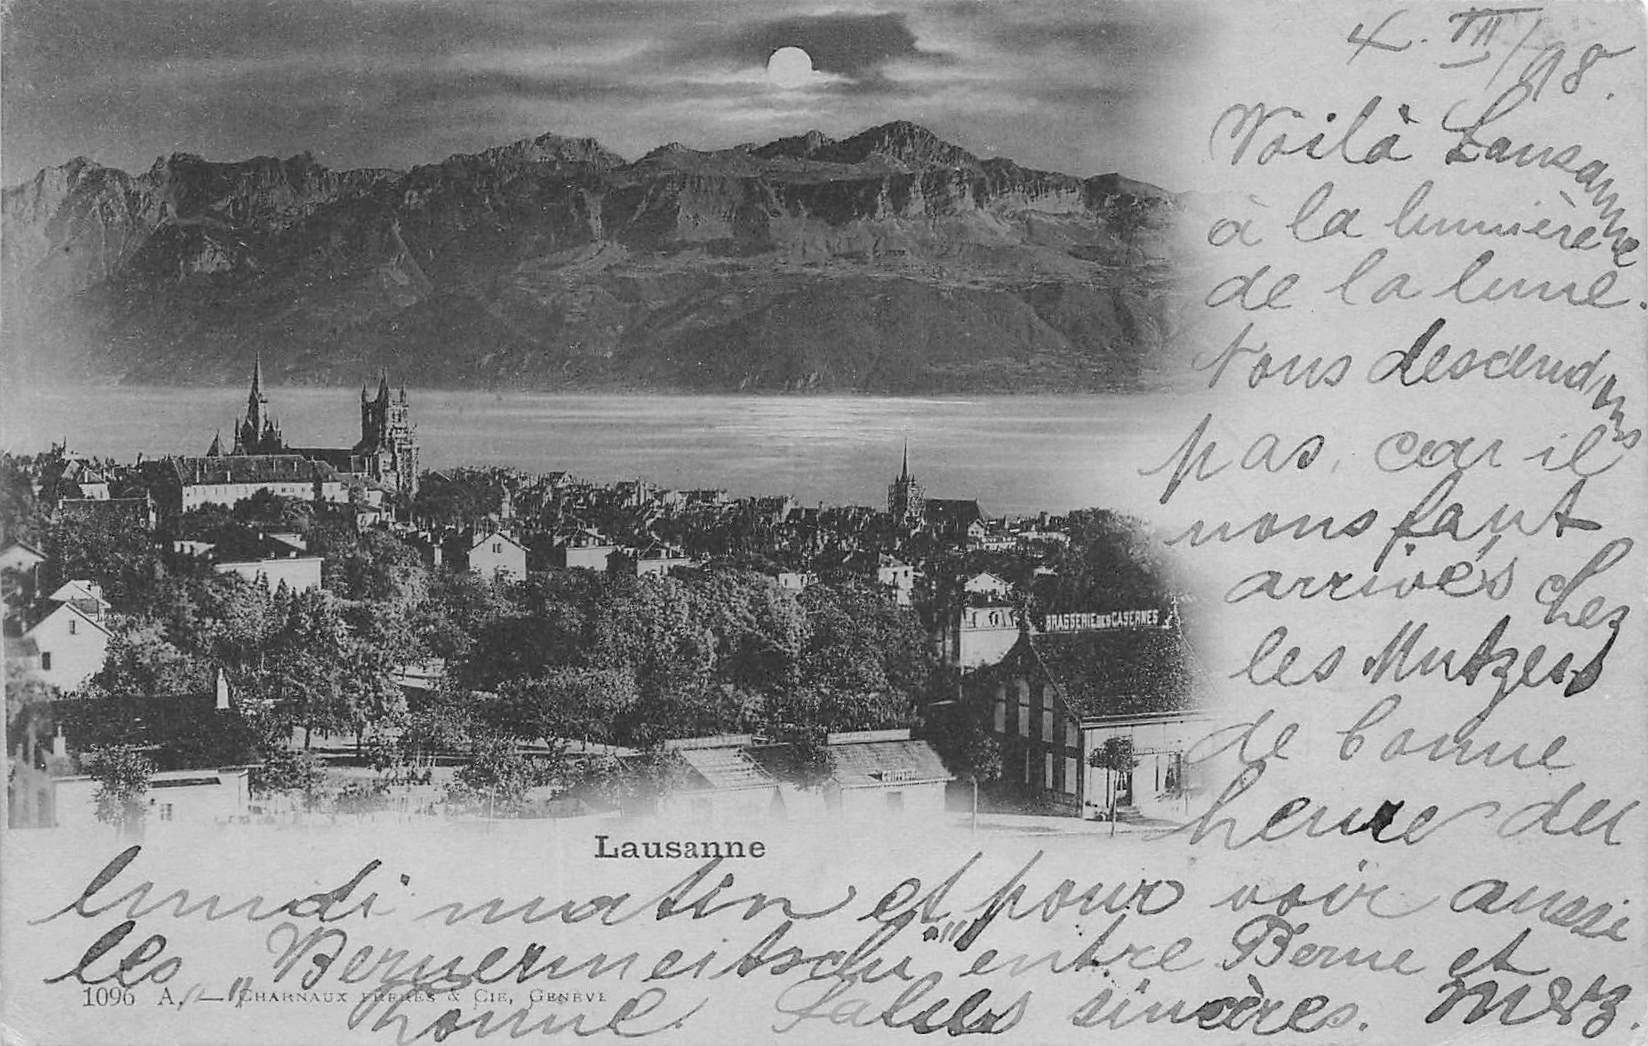 4. VII/98.
Voilà Lausanne
à la lumière
de la lune.
Nous descendons
pas, car il
nous faut
arrivés chez
les Mutzen
de bonne
heure du
lundi matin et pour voir aussi
les „Bernermeitschi" entre Berne et
Thoune. Saluts sincères.
BRASSERIE DES CASERNES
Lausanne
1096 A. — CHARNAUX FRÈRES & CIE, GENÈVE